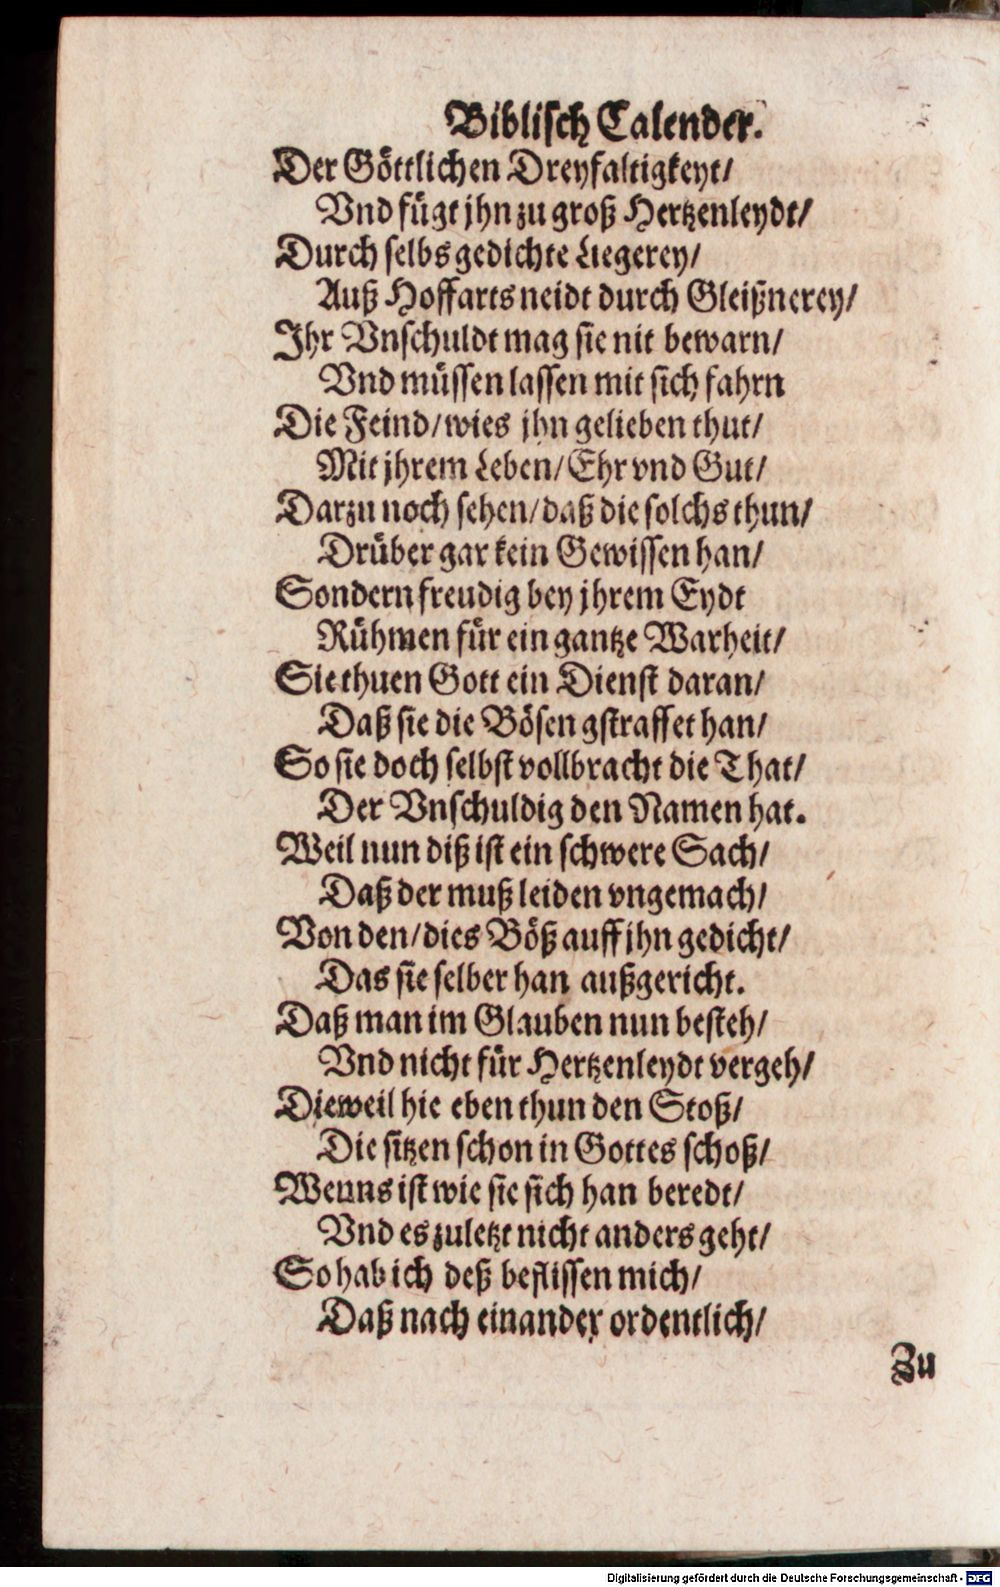 Biblisch Calender.
Der Göttlichen Dreyfaltigkeyt/
Vnd fügt jhn zu groß Hertzenleydt/
Durch selbs gedichte Liegerey/
Auß Hoffarts neidt durch Gleißnerey/
Ihr Vnschuldt mag sie nit bewarn/
Vnd müssen lassen mit sich fahrn
Die Feind/wies jhn gelieben thut/
Mit jhrem Leben/Ehr vnd Gut/
Darzu noch sehen/daß die solchs thun/
Drüber gar kein Gewissen han/
Sondern freudig bey jhrem Eydt
Rühmen für ein gantze Warheit/
Sie thuen Gott ein Dienst daran/
Daß sie die Bösen gstraffet han/
So sie doch selbst vollbracht die That/
Der Vnschuldig den Namen hat.
Weil nun diß ist ein schwere Sach/
Daß der muß leiden vngemach/
Von den/dies Böß auff jhn gedicht/
Das sie selber han außgericht.
Daß man im Glauben nun besteh/
Vnd nicht für Hertzenleydt vergeh/
Dieweil hie eben thun den Stoß/
Die sitzen schon in Gottes schoß/
Wenns ist wie sie sich han beredt/
Vnd es zuletzt nicht anders geht/
So hab ich deß beflissen mich/
Daß nach einander ordentlich/
Zu
Digitalisierung gefördert durch die Deutsche Forschungsgemeinschaft - DFG